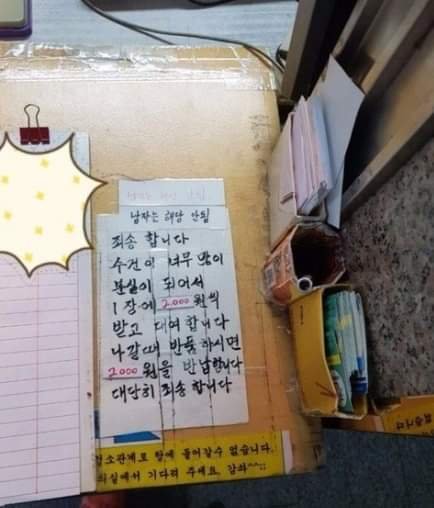 남자는 해당 안됨
남자는 해당 안됨
죄송 합니다
수건이 너무 많이
분실이 되어서
1장에 2.000 원씩
받고 대여 합니다
나갈때 반품 하시면
2000 원을 반납합니다
대단히 죄송 합니다
청소관계로 탕에 들어갈수 없습니다.
의실에서 기다려 주세요. 감사^^;;